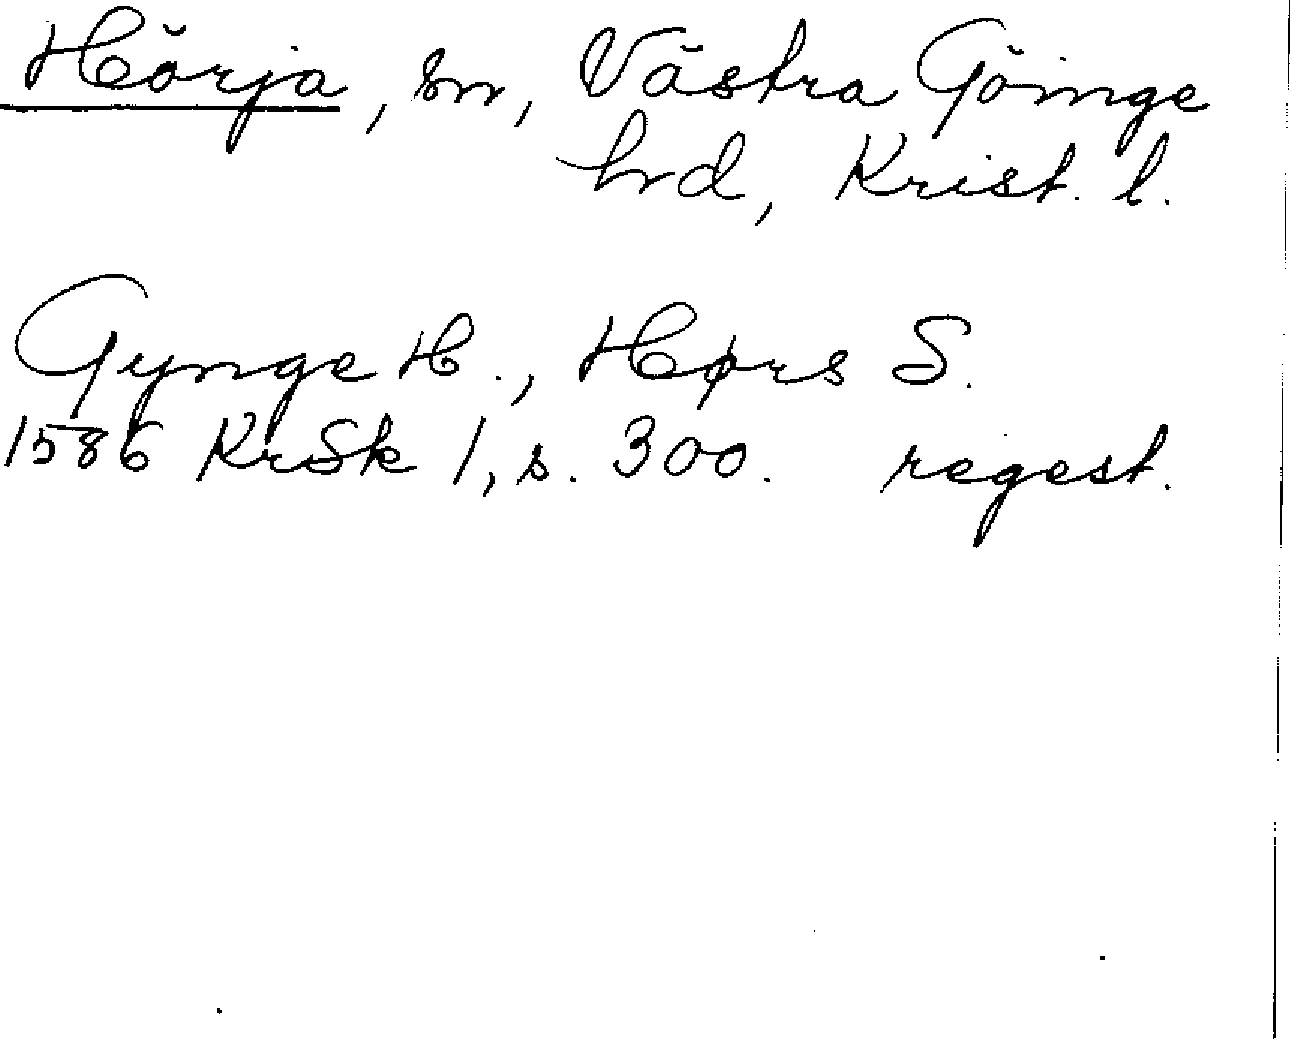 Hörja, sn, Västra Göinge
hrd, Krist. l.
Gynge H., Hørs S.
1586 KrSk 1, s. 300. regest.